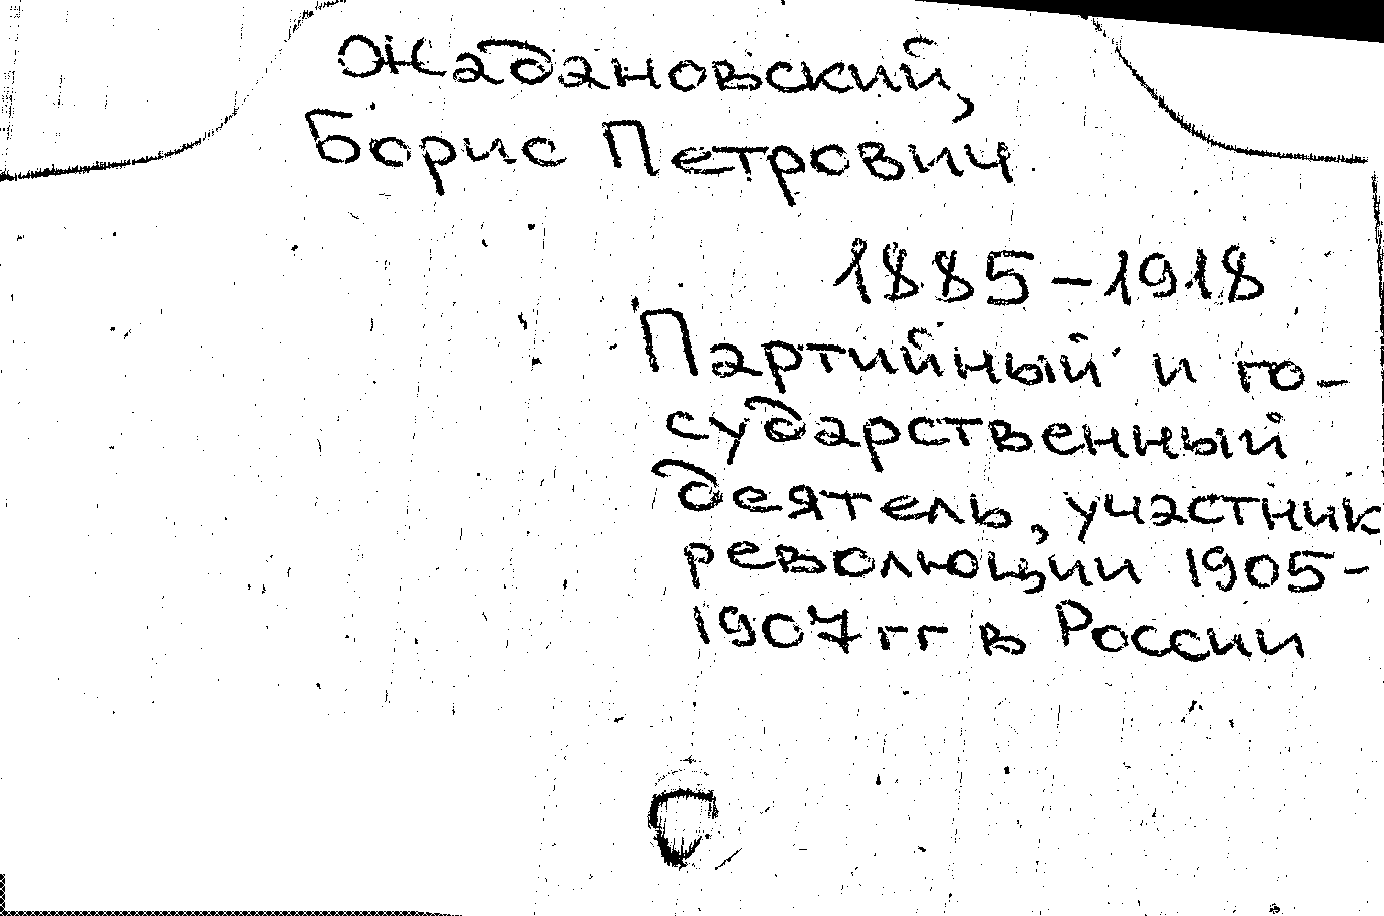 Жадановский,
Борис Петрович
1885-1918
Партийный и го-
сударственный
деятель, участник
революции 1905-
1907 гг в России